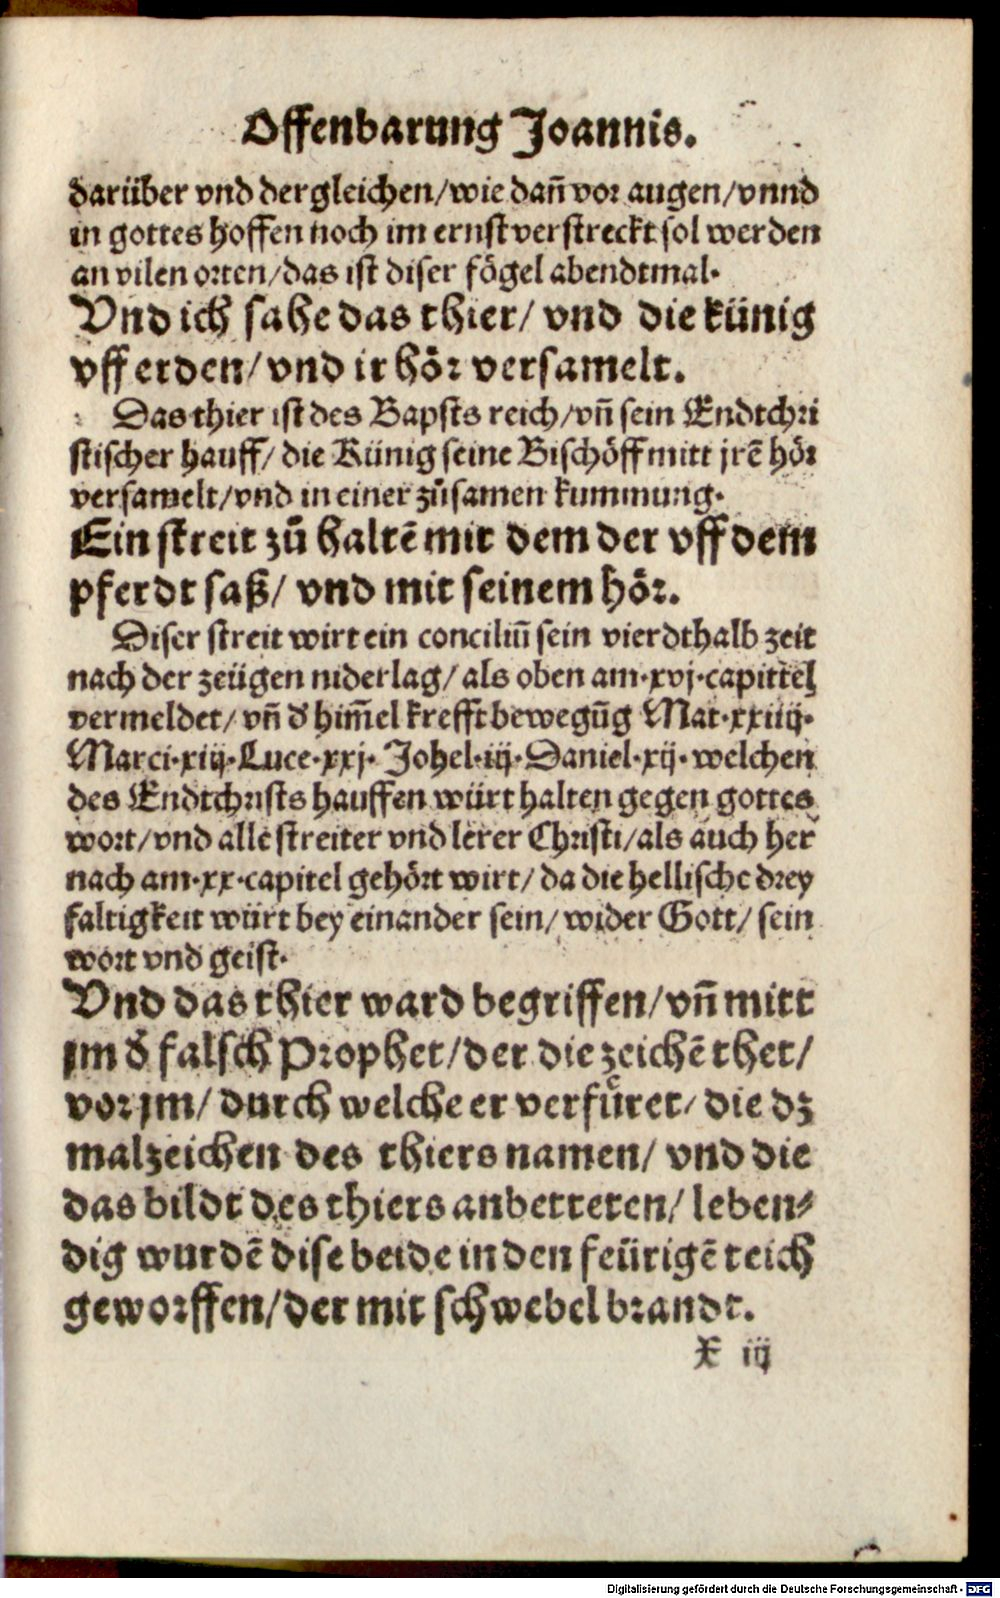 Offenbarung Joannis.
darüber vnd dergleichen/wie dañ vor augen/vnnd
in gottes hoffen noch im ernst verstreckt sol werden
an vilen orten/das ist diser fögel abendtmal.
Vnd ich sahe das thier/ vnd die künig
vff erden/vnd ir hör versamelt.
Das thier ist des Bapsts reich/vñ sein Endtchri
stischer hauff/ die Künig seine Bischöff mitt jrē hör
versamelt/vnd in einer zůsamen kummung.
Ein streit zů haltē mit dem der vff dem
pferdt saß/ vnd mit seinem hör.
Diser streit wirt ein conciliũ sein vierdthalb zeit
nach der zeügen niderlag/ als oben am.xvj.capittel
vermeldet/ vñ d̄ him̄el krefft bewegũg Mat.xxiiij.
Marci.xiij.Luce.xxj. Johel.iij.Daniel.xij. welchen
des Endtchrists hauffen würt halten gegen gottes
wort/vnd alle streiter vnd lerer Christi/als auch her
nach am.xx.capitel gehört wirt/ da die hellische drey
faltigkeit würt bey einander sein/ wider Gott/ sein
wort vnd geist.
Vnd das thier ward begriffen/vñ mitt
jm d̄ falsch Prophet/der die zeichē thet/
vor jm/ durch welche er verfůret/ die dz
malzeichen des thiers namen/ vnd die
das bildt des thiers anbetteten/ leben⸗
dig wurdē dise beide in den feürigē teich
geworffen/der mit schwebel brandt.
X iij
Digitalisierung gefördert durch die Deutsche Forschungsgemeinschaft - DFG